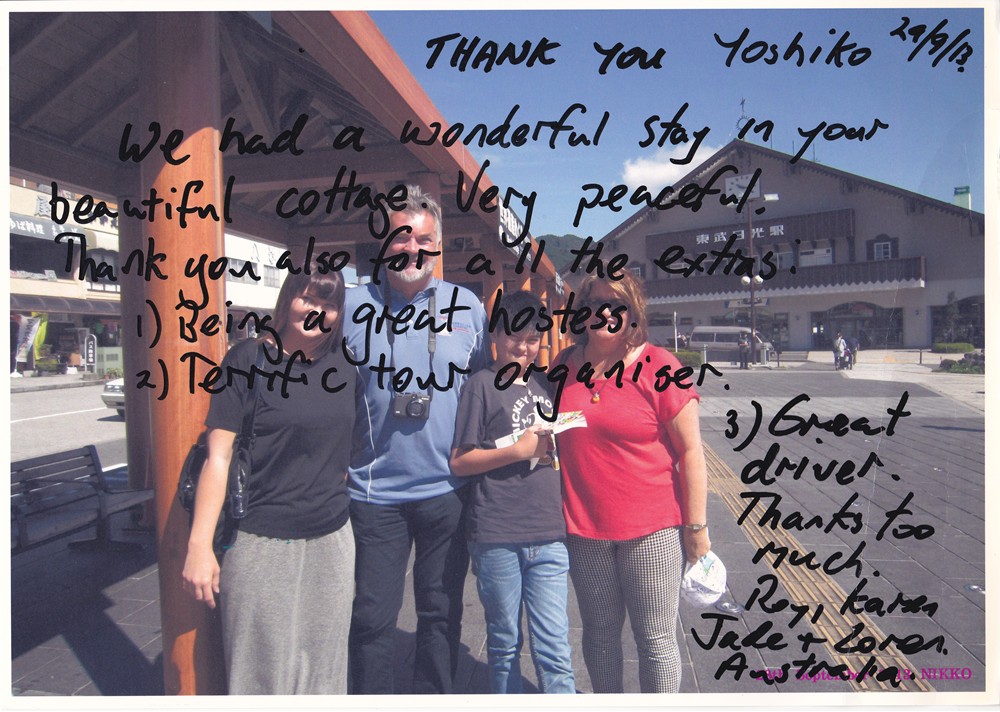 THANK YOU Yoshiko 29/9/13.
We had a wonderful stay in your
beautiful cottage. Very peaceful.
Thank you also for all the extras:
1) Being a great hostess.
2) Terrific tour organiser.
3) Great
driver.
Thanks too
much.
Roy, Karen
Jade + Loren.
Australia.
東武日光駅
NIKKO